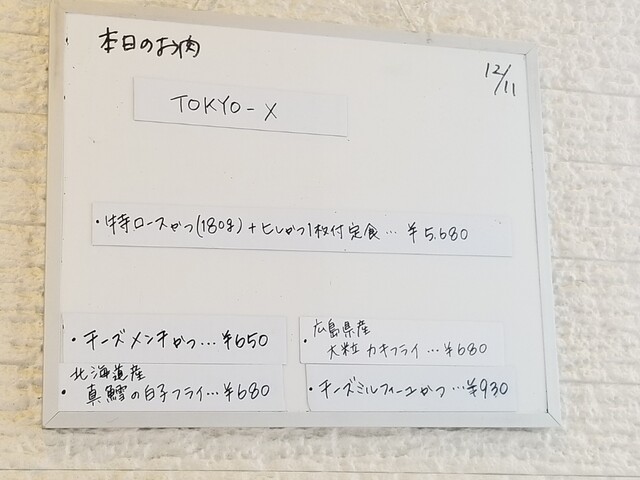 本日のお肉
12/11
TOKYO-X
・特ロースかつ(180g)+ヒレかつ1枚付定食…¥5,680
・チーズメンチかつ…¥650
・広島県産
大粒カキフライ…¥680
・北海道産
真鱈の白子フライ…¥680
・チーズミルフィーユかつ…¥930